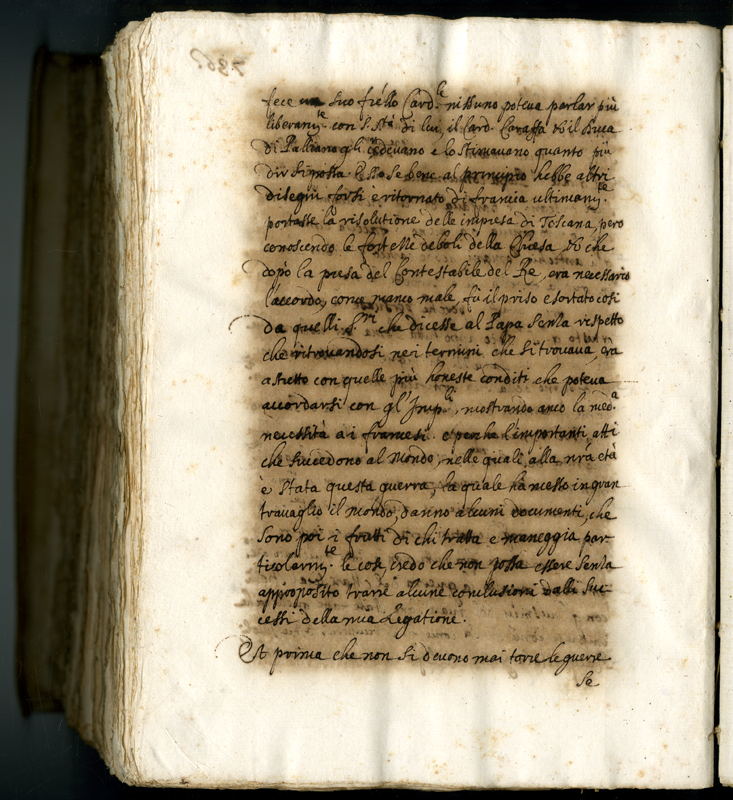 fece un suo fr̃ello Card.le nissuno poteva parlar più
liberam.te con S. Stà di lui, il Card. Caraffa et il Duca
di Palliano gli cedevano e lo stimavano quanto più
dir si possa Esso se bene al principio hebbe altri
disegni forsi è ritornato di francia ultimam.te
portasse la risolutione delle impresa di Toscana, pero
conoscendo le fortesse deboli della Chiesa et che
dopò la presa del Contestabile del Re, era necessario
l'accordo, come manco male, fù il priso esortato così
da quelli S.ri che dicesse al Papa senza rispetto
che ritrovandosi nei termini che si trovava, era
astretto con quelle più honeste conditi che poteva
accordarsi con gl'Imp.li, mostrando anco la med.a
necessità ai francesi. e perche l'importanti atti
che succedono al Mondo, nelle quali alla nrã età
è stata questa guerra, la quale ha messo in gran
travaglio il mondo, danno alcuni documenti, che
sono poi i frutti di chi tratta e maneggia par-
ticolarm.te le cose, credo che non possa essere senza
appropposito trarre alcune conclusioni dalli suc-
cessi della mia Legatione.
Et prima che non si devono mai torre le guerre
se